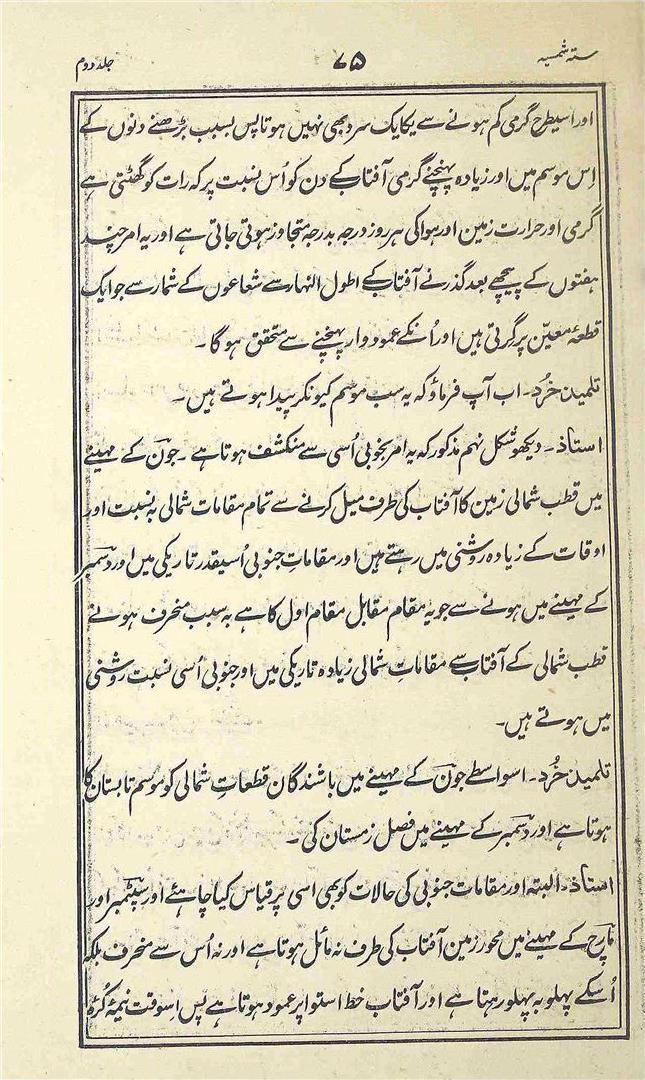 ستہ شمسیہ ۷۵ جلد دوم
اور اسیطرح گرمی کم ہونے سے یکایک سرد بھی نہیں ہوتا پس بسبب بڑھنے دنوں کے
اِس موسم میں اور زیادہ پہنچنے گرمی آفتاب کے دن کو اُس نسبت پر کہ رات کو گھٹتی ہے
گرمی اور حرارت زمین اور ہوا کی ہر روز درجہ بدرجہ متجاوز ہوتی جاتی ہے اور یہ امر چند
ہفتوں کے پیچھے بعد گذرنے آفتاب کے اطول النہار سے شعاعوں کے شمار سے جو ایک
قطعۂ معیّن پر گرتی ہیں اور اُنکے عمود وار پہنچنے سے متحقق ہو گا ۔
تلمیذ خُرد ۔ اب آپ فرماؤ کہ یہ سب موسم کیونکر پیدا ہوتے ہیں ۔
استاذ ۔ دیکھو شکل نہم مذکور کہ یہ امر بخوبی اُسی سے منکشف ہوتا ہے ۔ جون کے مہینے
میں قطب شمالی زمین کا آفتاب کی طرف میل کرنے سے تمام مقامات شمالی بہ نسبت اور
اوقات کے زیادہ روشنی میں رہتے ہیں اور مقاماتِ جنوبی اُسیقدر تاریکی میں اور دسمبر
کے مہینے میں ہونے سے جو یہ مقام مقابل مقام اول کا ہے بہ سبب منحرف ہونے
قطب شمالی کے آفتاب سے مقاماتِ شمالی زیادہ تاریکی میں اور جنوبی اُسی نسبت روشنی
میں ہوتے ہیں ۔
تلمیذ خُرد ۔ اسواسطے جون کے مہینے میں باشندگان قطعاتِ شمالی کو موسم تابستان کا
ہوتا ہے اور دسمبر کے مہینے میں فصل زمستان کی ۔
استاذ ۔ البتہ اور مقامات جنوبی کی حالات کو بھی اسی پر قیاس کیا چاہئے اور سپٹمبر اور
مارچ کے مہینے میں محور زمین آفتاب کی طرف نہ مائل ہوتا ہے اور نہ اُس سے منحرف بلکہ
اُسکے پہلو بہ پہلو رہتا ہے اور آفتاب خط استوا پر عمود ہوتا ہے پس اسوقت نیمۂ کُرہ